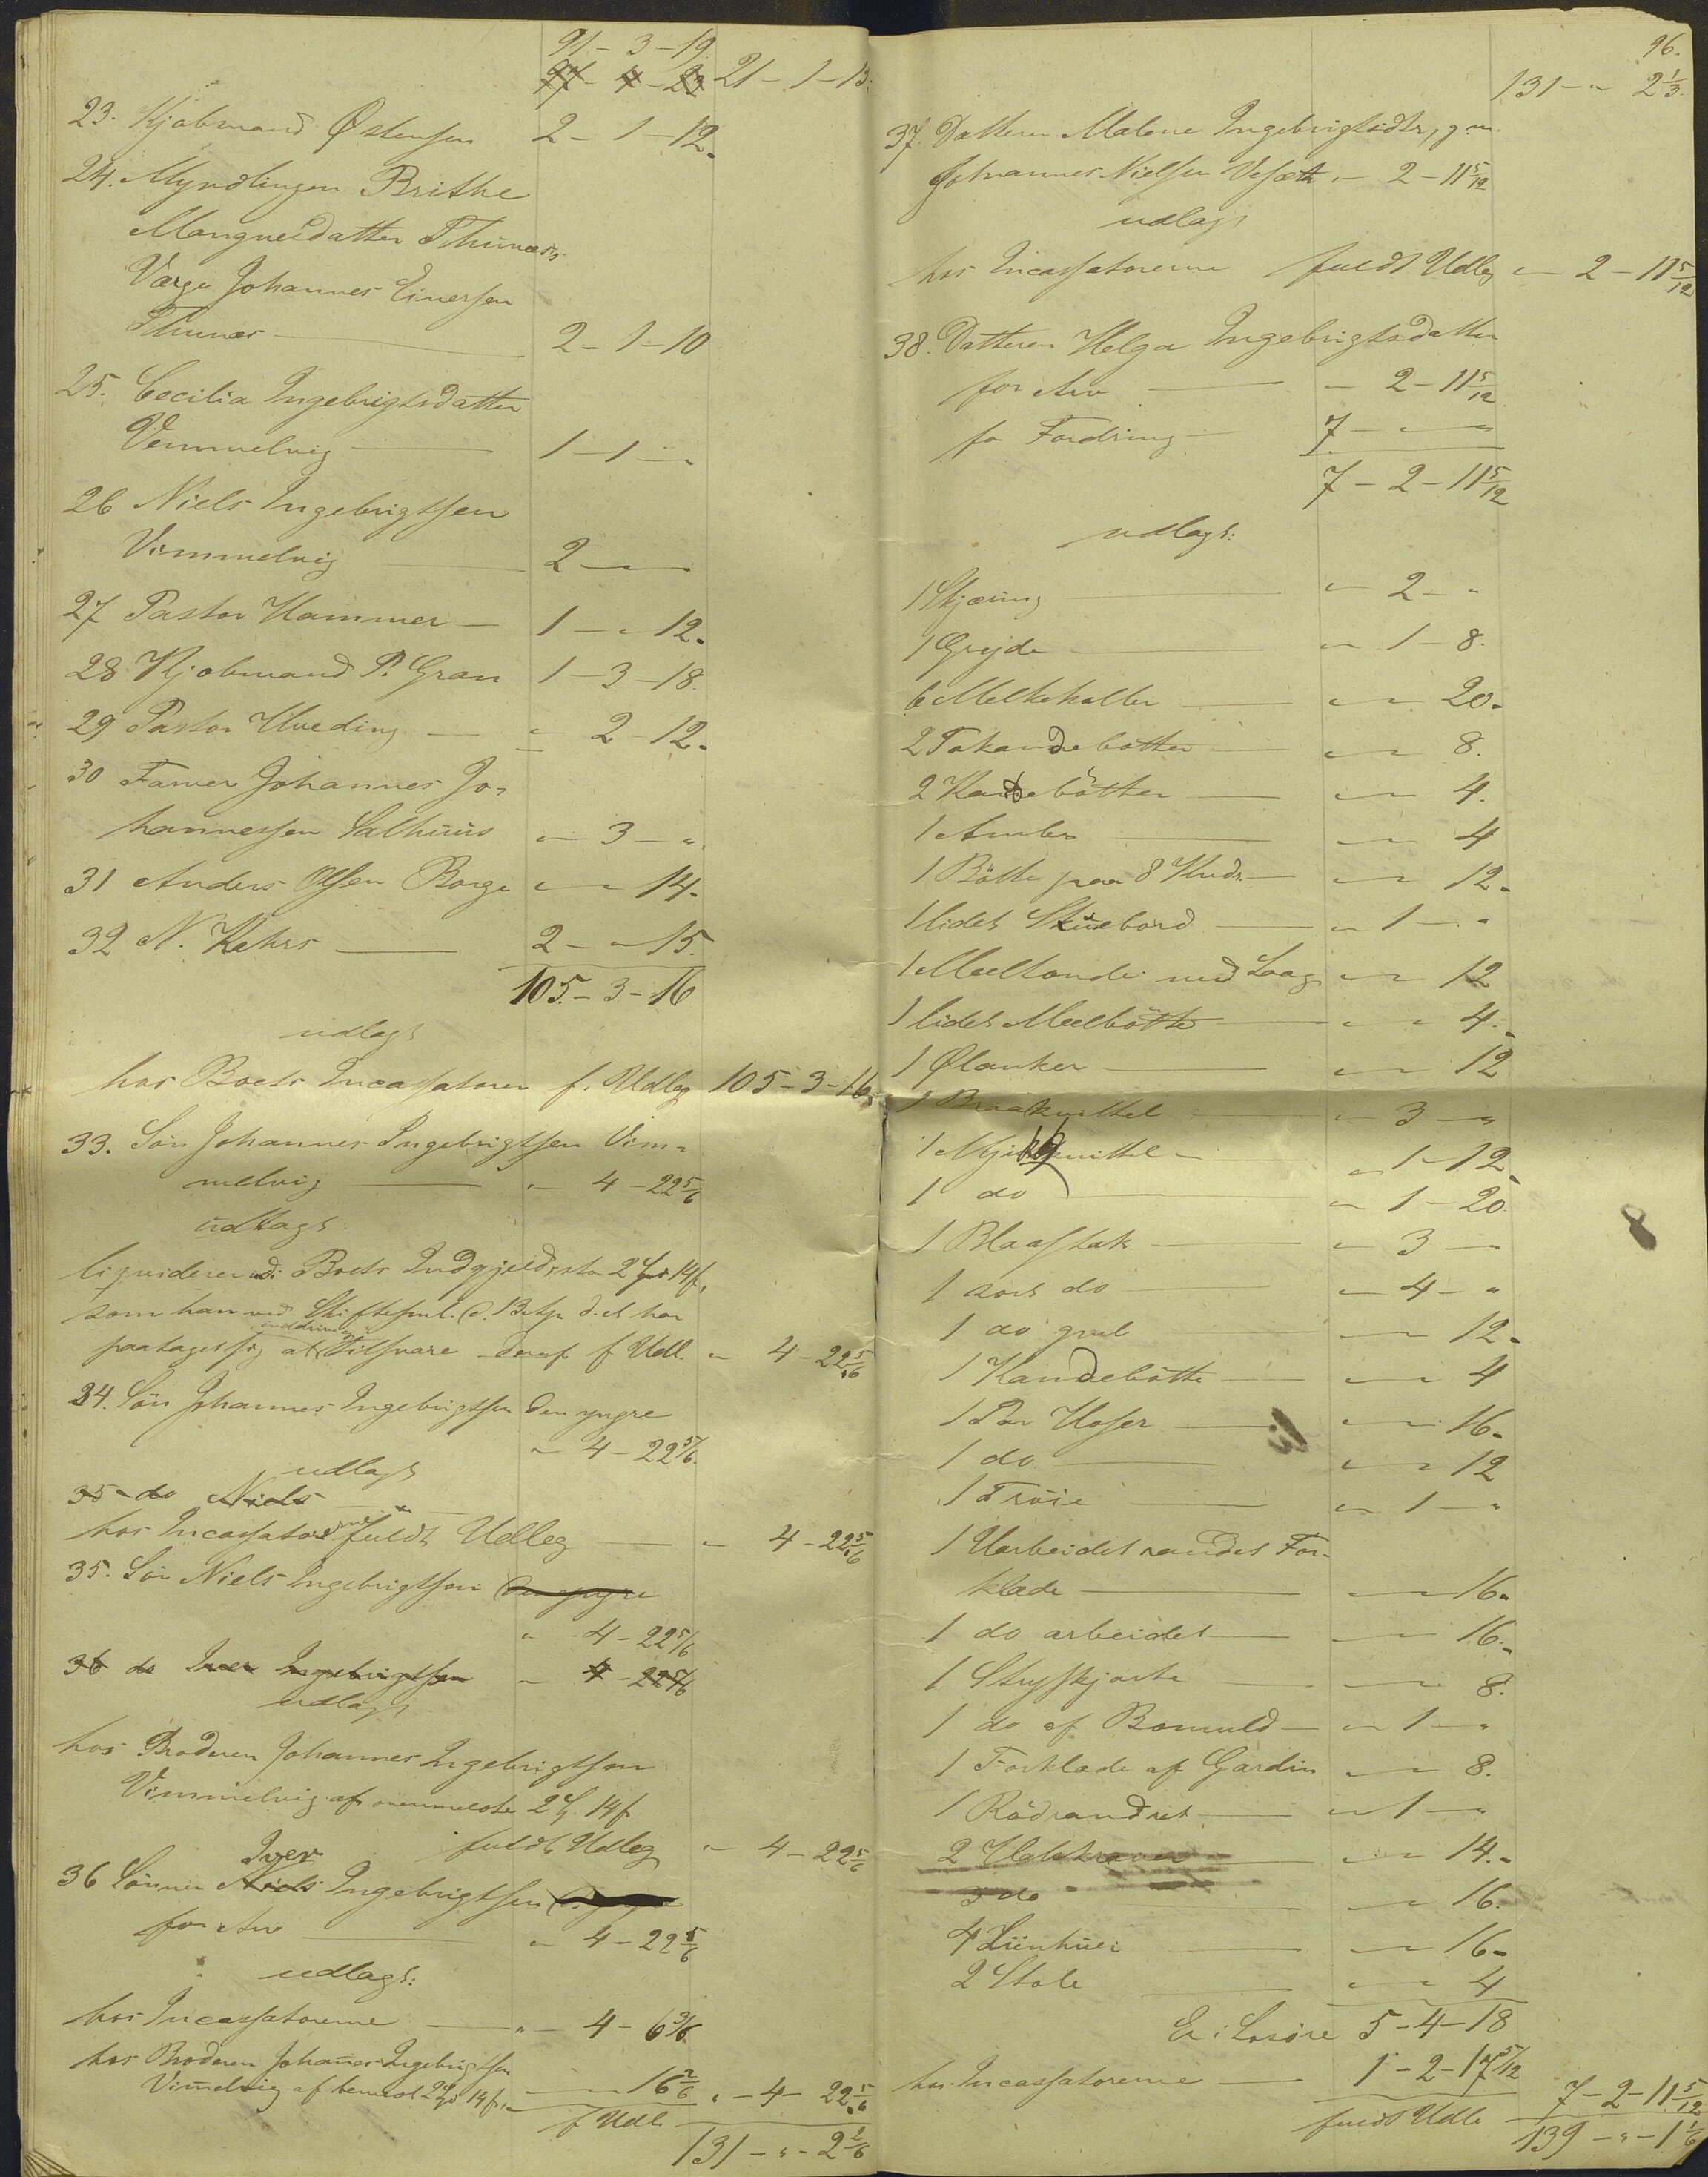 91 - 3 - 19
97 - 4 - 23 21 - 1 - 13.
23. Kjøbmand Østensen 2 - 1 - 12.
24. Myndlingen Brithe
Mangnesdatter Thunes,
Værge Johannes Einersen
Thunes 2 - 1 - 10
25. Cecilia Ingebrigtsdatter
Vemmelvig 1 - 1 - "
26 Niels Ingebrigtsen
Vimmelvig 2 - " - "
27 Pastor Hammer 1 - " - 12.
28 Kjøbmand P. Gran 1 - 3 - 18.
29 Pastor Hveding " - 2 - 12.
30 Farver Johannes Jo-
hannessen Salhuus " - 3 - "
31 Anders Olsen Borge " - " - 14.
32 N. Kahrs 2 - " - 15.
105. - 3 - 16
udlagt
hos Boets Incassatorer f. Udlæg 105 - 3 - 16.
33. Søn Johannes Ingebrigtsen Vim-
melvig " - 4 - 22 5/6
udlagt
liquiderer i Boets Indgjeld 2 14 f,
som han ved
paataget sig at inddrive tilsvare deraf f Udl. " - 4 - 22 5/6
34. Søn Johannes Ingebrigtsen den yngre
" - 4 - 22 5/6.
udlagt
35 - do Niels
hos Incassatorerne fuldt Udlæg " - 4 - 22 5/6
35. Søn Niels Ingebrigtsen den yngre
" - 4 - 22 5/6
36 do Iver Ingebrigtsen " - 4 - 22 5/6
udlagt
hos Broderen Johannes Ingebrigtsen
Vimmelvig af ovenmeldte 2 14 f
fuldt Udlæg " - 4 - 22 5/6
Iver
36 Sønnen Niels Ingebrigtsen
for Arv " - 4 - 22 5/6
udlagt:
hos Incassatorerne " - 4 - 6 3/6.
hos Broderen Johannes Ingebrigtsen
Vimelvig af 2 14 f. " - " - 16 2/6 " - 4 - 22 5/6
f Udl.
131 - " - 2 2/6
96.
131 - " - 2 1/3.
37. Datteren Malene Ingebrigtsdtr, g. m.
Johannes Nielsen Vesæth " - 2 - 11 5/12
udlagt
hos Incassatorerne fuldt Udlæg " - 2 - 11 5/12
38. Datteren Helga Ingebrigtsdatter
for Arv " - 2 - 11 5/12
for Fordring 7 - " - "
7 - 2 - 11 5/12
udlagt:
1 Skjæring " - 2 - "
1 Gryde " - 1 - 8.
6 Melkekoller " - " - 20.
2 Tokandebøtter " - " - 8.
2 Kandebøtter " - " - 4.
1 Amber " - " - 4
1 Bøtte paa 8 Kndr. " - " - 12.
1 lidet Skuebord " - 1 - "
1 Meeltønde med Laag " - " - 12
1 lidet Meelbøtte " - " - 4.
1 Ølanker " - " - 12
1 Braakvittel " - 3 - "
1 " - 1 - 12.
1 do " - 1 - 20.
1 Blaastak " - 3 - "
1 sort do " - 4 - "
1 do gul " - " - 12.
1 Kandebøtte " - " - 4
1 Par Hoser " - " - 16.
1 do " - " - 12
1 Trøie " - 1 - "
1 Uarbeidet randet For-
klæde " - " - 16.
1 do arbeidet " - " - 16.
1 Stryskjorte " - " - 8.
1 do af Bomuld " - 1 - "
1 Forklæde af Gardin " - " - 8.
1 Rødrandret " - 1 - "
2 Halskraver " - " - 14.
3 do " - " - 16.
4 Liinhuer " - " - 16.
2 Stole " - " - 4
Er i Løsøre 5 - 4 - 18
hos Incassatorerne 1 - 2 - 17 5/12
fuldt Udlæ 7 - 2 - 11 5/12
139 - " - 1 1/6